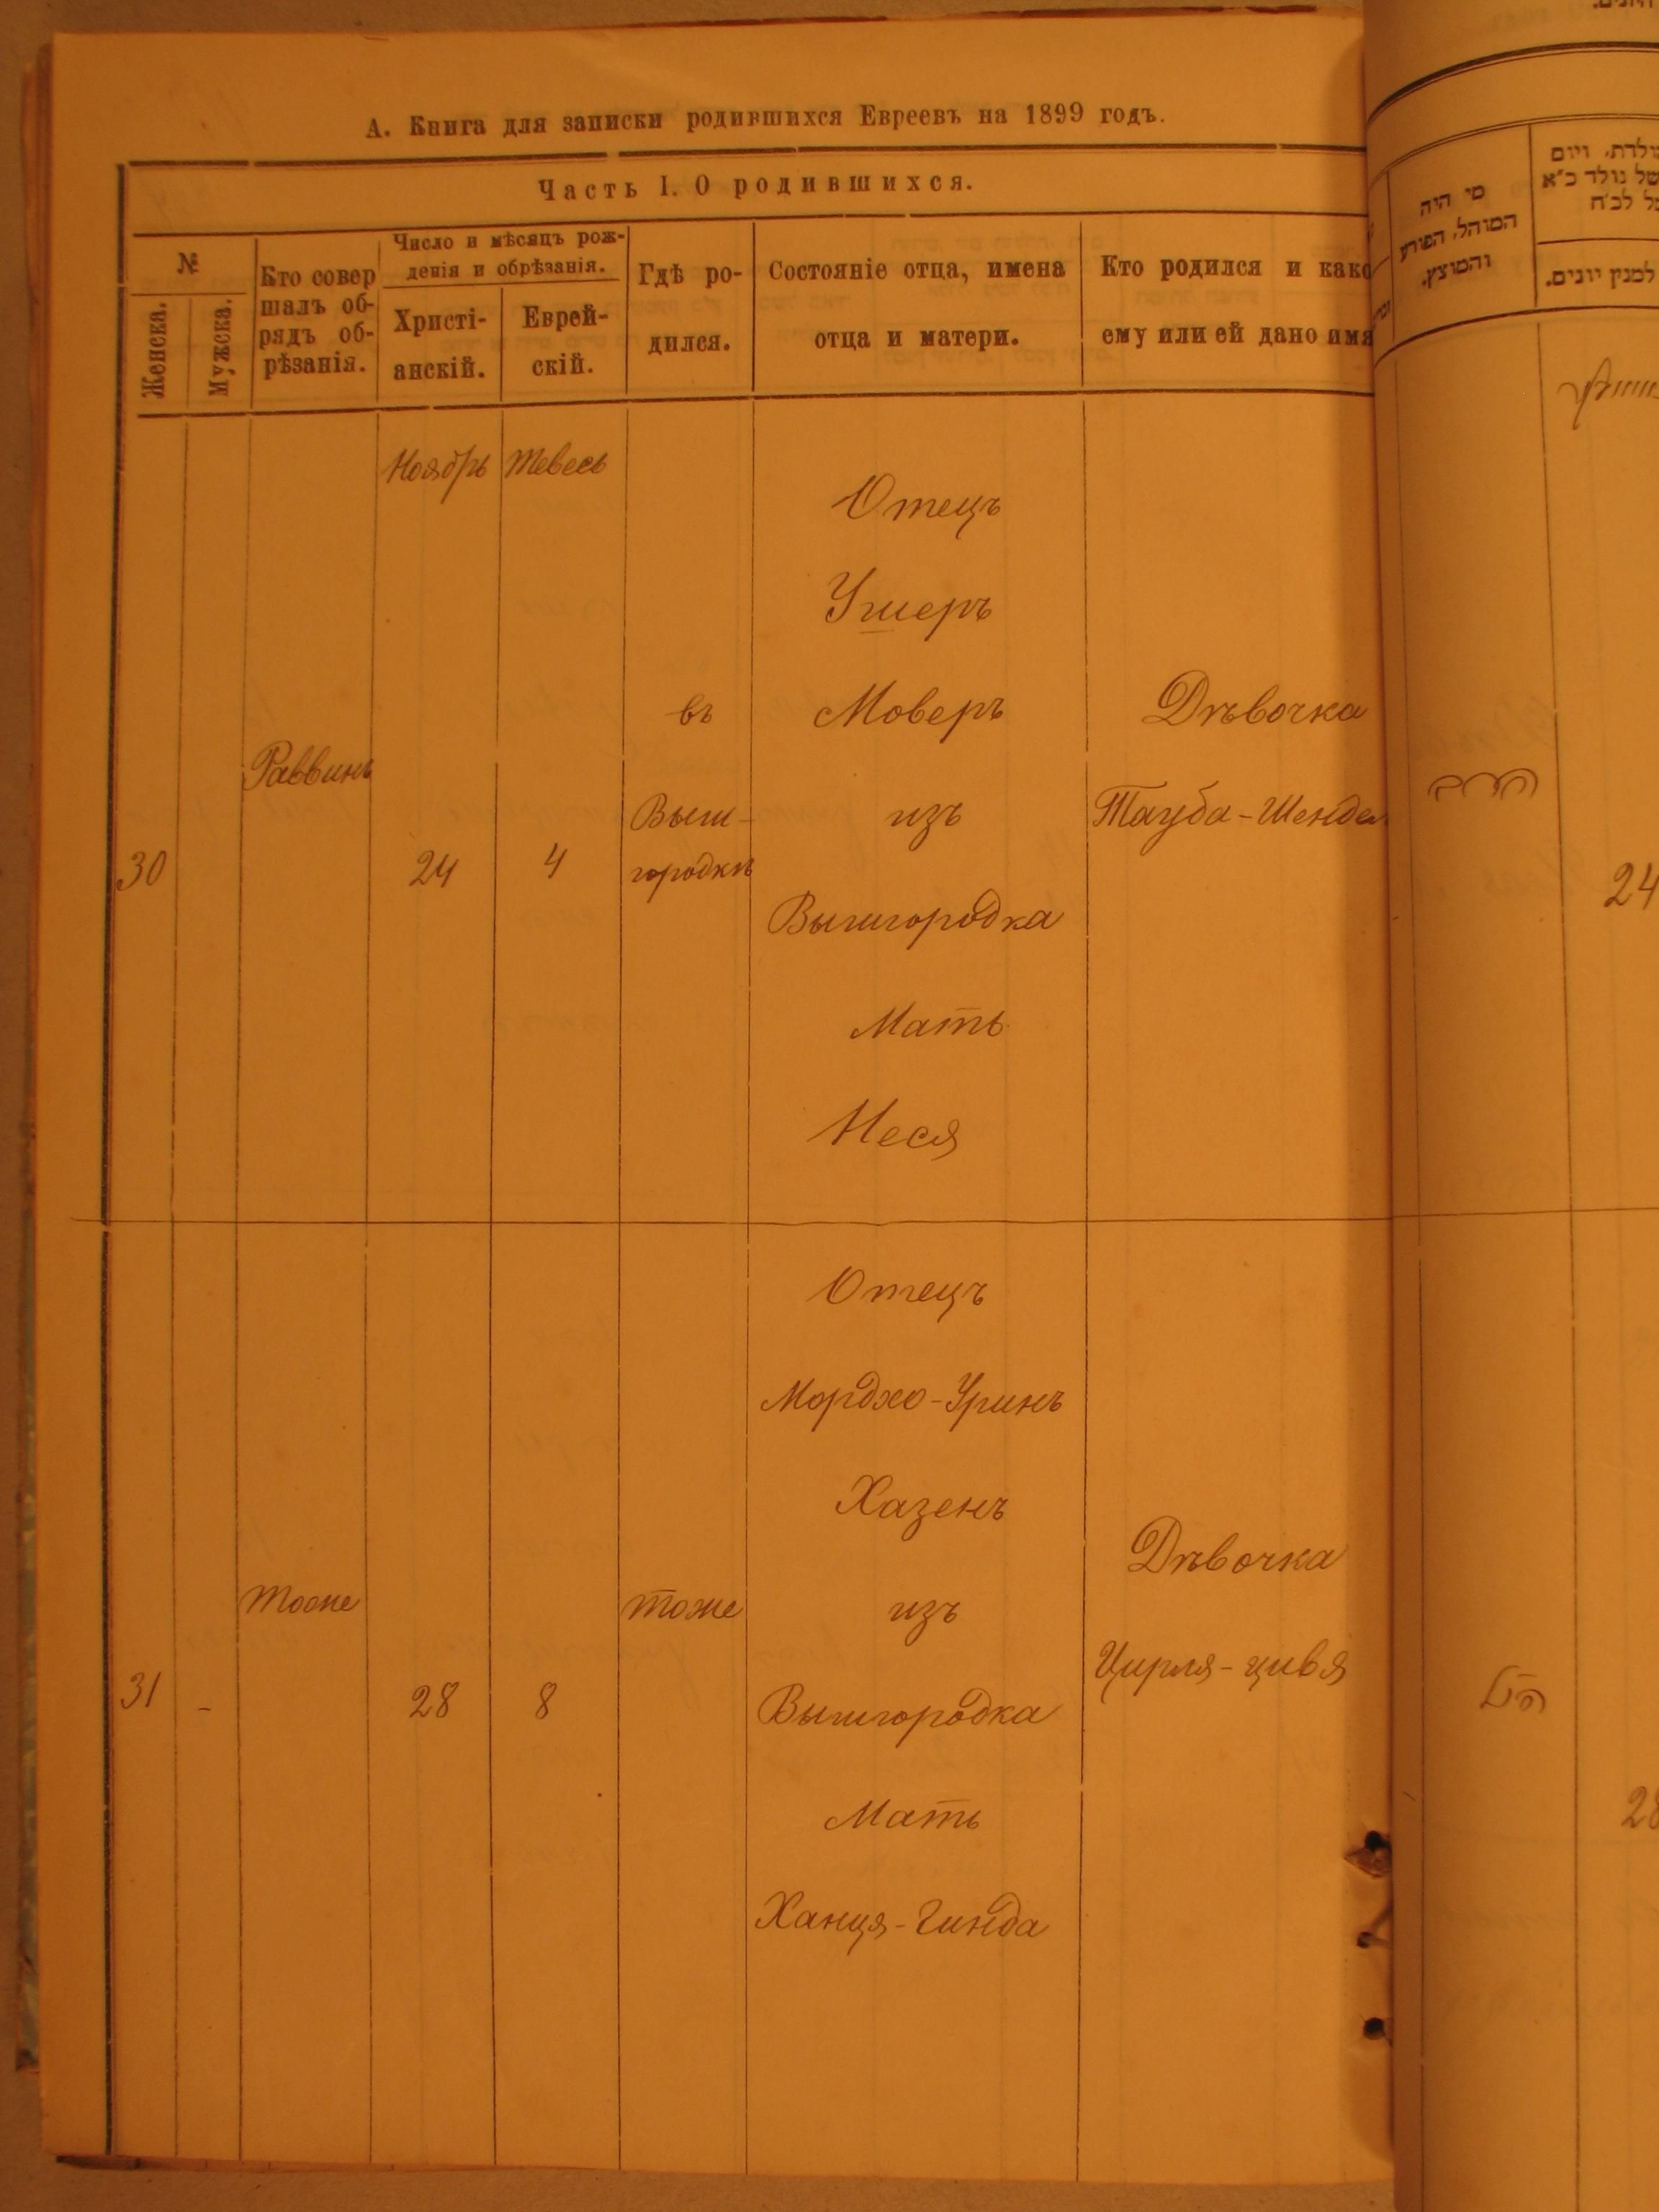 А. Книга для записки родившихся Евреевъ на 1899 годъ.
Часть I. О родившихся.
№
Женска.
Мужска.
Кто совер
шалъ об-
рядъ об-
рѣзанія.
Число и мѣсяцъ рож-
денія и обрѣзанія.
Христі-
анскій.
Еврей-
скій.
Гдѣ ро-
дился.
Состояніе отца, имена
отца и матери.
Кто родился и како
ему или ей дано имя
Ноябрь
Тевесь
30
Раввинъ
24
4
въ
Выш-
городкѣ
Отецъ
Ушеръ
Моверъ
изъ
Вышгородка
Мать
Неся
Дѣвочка
Тауба-Шендел
31
-
Тоже
28
8
тоже
Отецъ
Мордхо-Уринъ
Хазенъ
изъ
Вышгородка
Мать
Ханця-Гинда
Дѣвочка
Цирля-цивя
מי היה
המוהל, הפורע
והמוצץ.
ולדת, ויום
של נולד כ״א
ל לכ״ח
למנין יונים.
הרב
24
הנ״ל
28